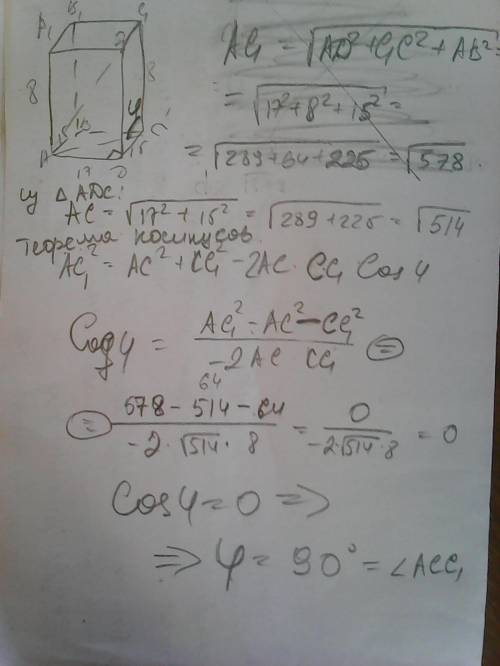 B₁ C₁
A₁ D₁
8 8
φ
A 15 B C
17 D 15
AC₁ = √(AD² + C₁C² + AB²) =
= √(17² + 8² + 15²) =
= √(289 + 64 + 225) = √578.
из △ADC:
AC = √(17² + 15²) = √(289 + 225) = √514
Теорема косинусов.
AC₁² = AC² + CC₁² − 2AC · CC₁ Cos φ
Cos φ = (AC₁² − AC² − CC₁²) / (−2 AC CC₁) =
64
= (578 − 514 − 64) / (−2 · √514 · 8) = 0 / (−2 · √514 · 8) = 0
Cos φ = 0 ⇒
⇒ φ = 90° = ∠ACC₁